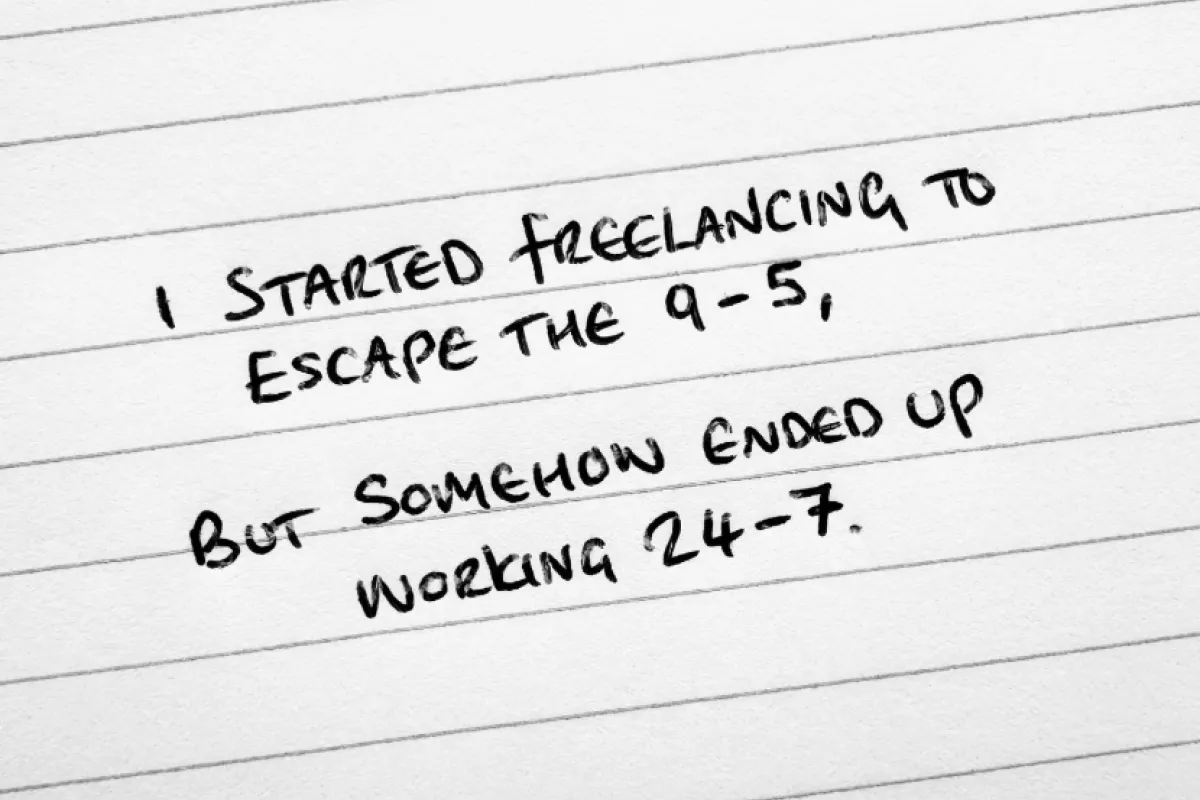 I STARTED FREELANCING TO
ESCAPE THE 9-5,
BUT SOMEHOW ENDED UP
WORKING 24-7.